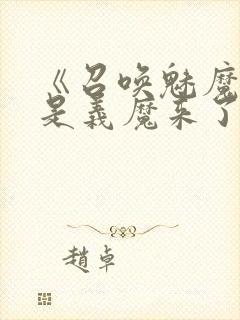 《召唤魅魔
是義魔来了
趙卓